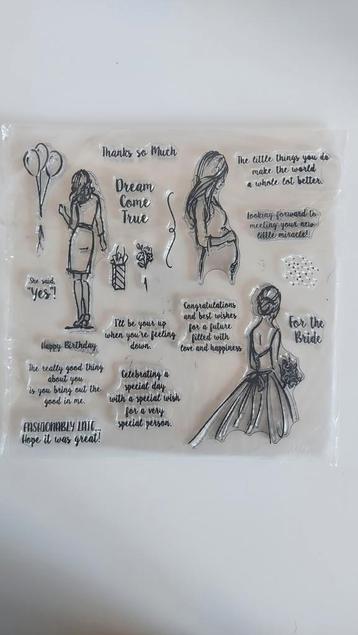 Thanks so Much
The little things you do
make the world
a whole lot better.
Dream
Come
True
looking forward to
meeting your new
little miracle!
She said,
"Yes"!
Congratulations
and best wishes
for a future
filled with
love and happiness
For the
Bride
I'll be your up
when you're feeling
down.
Happy Birthday
The really good thing
about you
is you bring out the
good in me.
Celebrating a
special day
with a special wish
for a very
special person.
FASHIONABLY LATE...
Hope it was great!